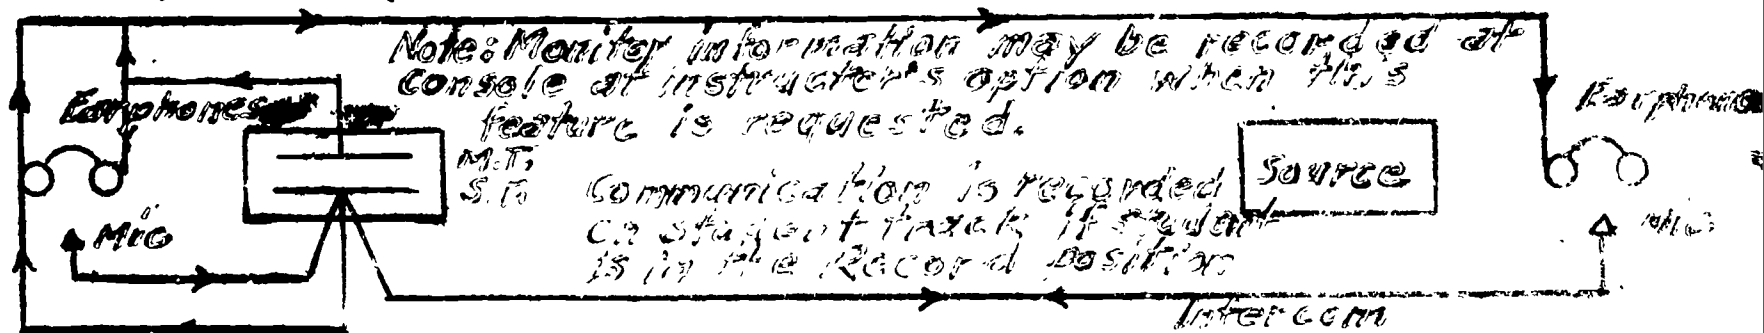 Note: Monitor information may be recorded at
console at instructer's option when this
feature is requested.
Earphones
M.T.
S.T.
Source
Communication is recorded
on student track if student
is in the Record position
Mic
Mic
Intercom